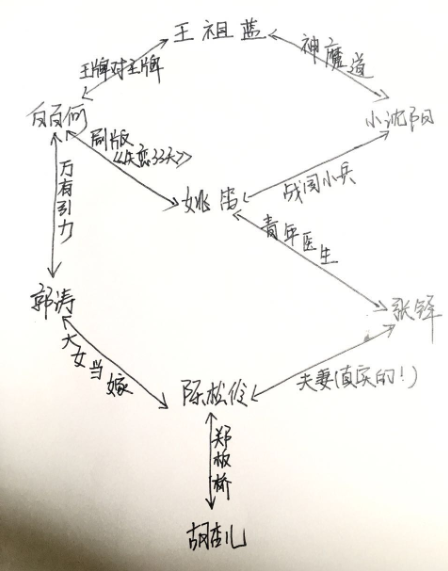 王祖蓝
王牌对王牌
神魔道
白百何
小沈阳
剧版
《失恋33天》
万有引力
姚笛
战国小兵
青年医生
郭涛
张铎
大女当嫁
陈松伶
夫妻(真实的!)
郑板桥
胡杏儿